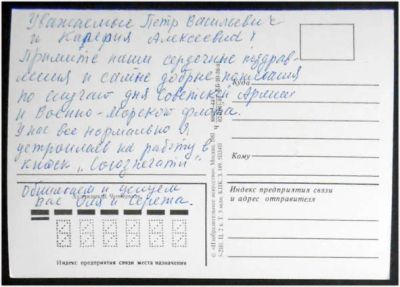 Уважаемые Петр Васильевич
и Калерия Алексеевна!
Примите наши сердечные поздрав
ления и самые добрые пожелания
по случаю дня Советской Армии
и Военно-Морского флота.
У нас все нормально. Я
устроилась на работу в
киоск „Союзпечати“
Обнимаем и целуем
Вас Оля и Сережа.
Куда
Кому
Индекс предприятия связи
и адрес отправителя
Индекс предприятия связи места назначения
© «Изобразительное искусство». Москва.